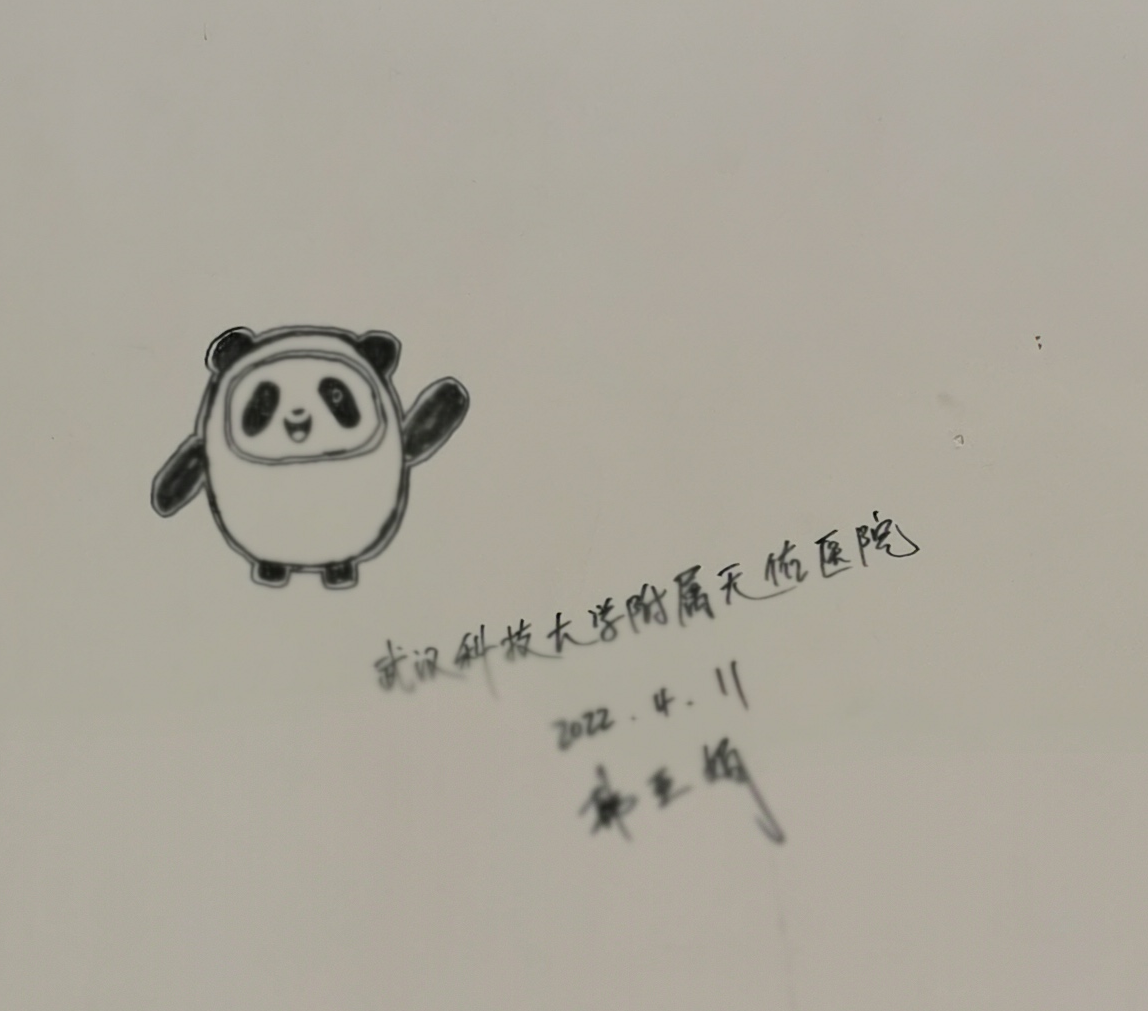 武汉科技大学附属天佑医院
2022.4.11